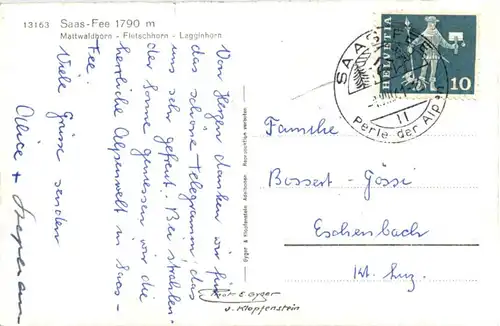 13163 Saas-Fee 1790 m
Mattwaldhorn - Fletschhorn - Lagginhorn
Von Herzen danken wir für
das schöne Telegramm, das
uns sehr gefreut. Bei strahlen-
der Sonne geniessen wir die
herrliche Alpenwelt in Saas-
Fee.
Viele Grüsse senden
Alice +
Gyger & Klopfenstein Adelboden Reproduktion verboten
HELVETIA
10
SAAS-FEE
Perle der Alpen
Familie
Bossert-Jössi
Eschenbach
Kt. Luz.
E Gyger
v. Klopfenstein